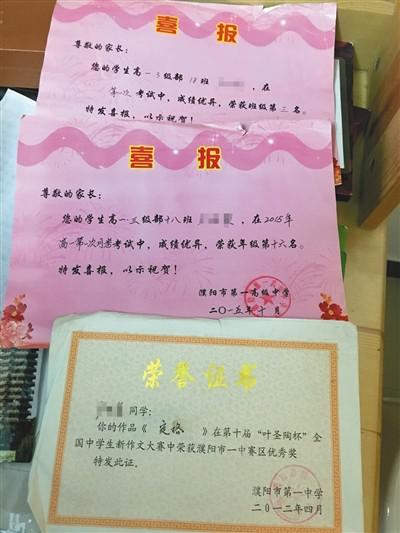 喜报
尊敬的家长：
您的学生高一·3级部18班，在
第一次考试中，成绩优异，荣获班级第三名。
特发喜报，以示祝贺！
喜报
尊敬的家长：
您的学生高一·三级部十八班，在2015年
高一第一次月考考试中，成绩优异，荣获年级第十六名。
特发喜报，以示祝贺！
濮阳市第一高级中学
二〇一五年十月
荣誉证书
同学：
你的作品《定格》在第十届“叶圣陶杯”全
国中学生新作文大赛中荣获濮阳市一中赛区优秀奖
特发此证。
濮阳市第一中学
二〇一二年四月